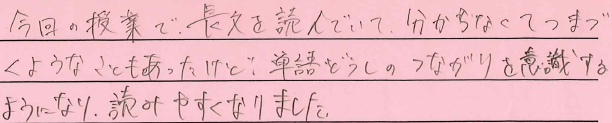 今回の授業で、長文を読んでいて、分からなくてつまづ
くようなこともあったけど、単語どうしのつながりを意識する
ようになり、読みやすくなりました。